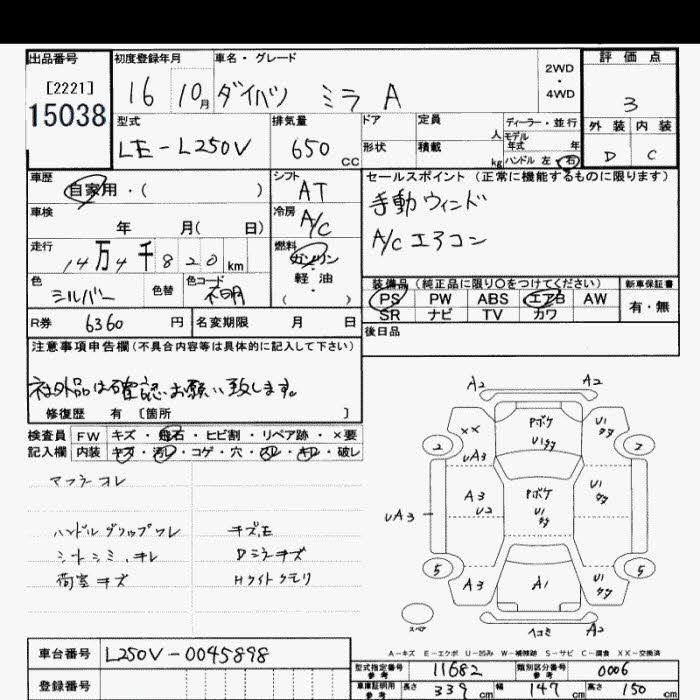 出品番号 初度登録年月 車名・グレード 評価点
[2221] 15038
16 10月 ダイハツ ミラ A
2WD・4WD
3
型式 排気量 ドア 定員 人 ディーラー・並行 外装 内装
LE-L250V 650cc
形状 積載 kg モデル年式 年 ハンドル 左・右
D C
車歴 自家用・( )
シフト AT
セールスポイント(正常に機能するものに限ります)
手動ウィンド
A/C エアコン
車検 年 月( 日)
冷房 A/C
走行 14万4千820km
燃料 ガソリン・軽油 ( )
色 シルバー 色替 色コード 不明
装備品(純正品に限り○をつけてください) 新車保証書
PS PW ABS エアB AW 有・無
SR ナビ TV カワ
R券 6360円 名変期限 月 日
後日品
注意事項申告欄(不具合内容等は具体的に記入して下さい)
社外品は確認お願い致します。
修復歴 有 〔箇所 〕
検査員 FW キズ・飛石・ヒビ割・リペア跡・×要
記入欄 内装 キズ・汚レ・コゲ・穴・スレ・キレ・破レ
ハンドルグリップワレ
キズ、E
シートシミ、キレ
Dミラーキズ
荷室キズ
Hライトクモリ
A2 A2
××
Pボケ
U1
2 2
UA3
A3
Pボケ
U1
UA3
U1
5 5
A3
A1
U1
スペア
ヘコミ A2
A-キズ E-エクボ U-凹み W-補修跡 S-サビ C-腐食 XX-交換済
車台番号 L250V-0045898
型式指定番号 参考 11682 類別区分番号 参考 0006
登録番号
車庫証明用 参考 長さ 339cm 幅 147cm 高さ 150cm